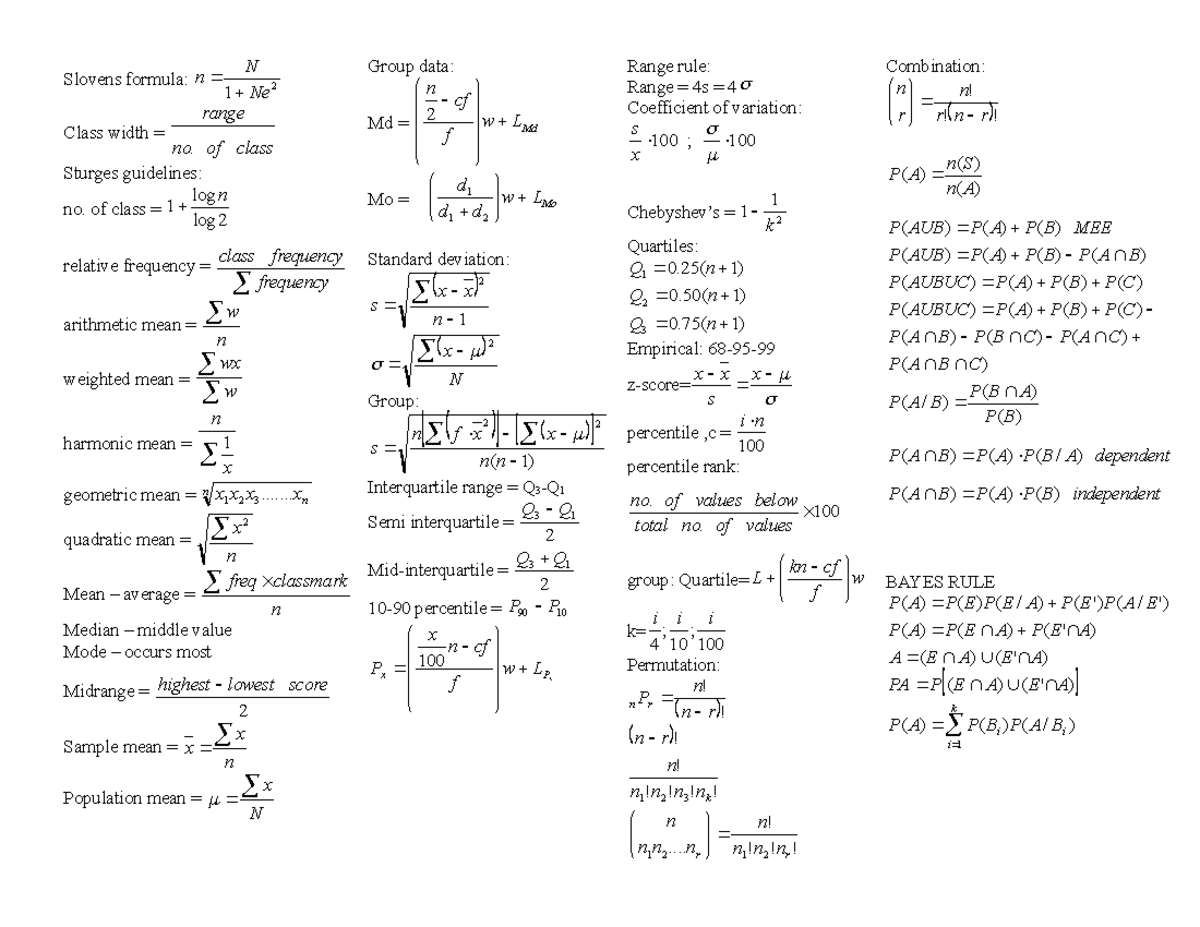 Slovens formula: n = N / (1 + Ne²)
Class width = range / no. of class
Sturges guidelines:
no. of class = 1 + log n / log 2
relative frequency = class frequency / ∑ frequency
arithmetic mean = ∑ w / n
weighted mean = ∑ wx / ∑ w
harmonic mean = n / ∑ (1/x)
geometric mean = ⁿ√(x₁x₂x₃.......xₙ)
quadratic mean = √(∑ x² / n)
Mean – average = ∑ freq × classmark / n
Median – middle value
Mode – occurs most
Midrange = highest - lowest score / 2
Sample mean = x̄ = ∑ x / n
Population mean = μ = ∑ x / N
Group data:
Md = ((n/2 - cf) / f) w + L_Md
Mo = (d₁ / (d₁ + d₂)) w + L_Mo
Standard deviation:
s = √(∑(x - x̄)² / (n - 1))
σ = √(∑(x - μ)² / N)
Group:
s = √((n[∑(f · x̄²)] - [∑(x - μ)]²) / n(n - 1))
Interquartile range = Q₃-Q₁
Semi interquartile = (Q₃ - Q₁) / 2
Mid-interquartile = (Q₃ + Q₁) / 2
10-90 percentile = P₉₀ - P₁₀
Pₓ = ((x/100 n - cf) / f) w + L_Pₓ
Range rule:
Range = 4s = 4σ
Coefficient of variation:
s/x ·100 ; σ/μ ·100
Chebyshev’s = 1 - 1/k²
Quartiles:
Q₁ = 0.25(n + 1)
Q₂ = 0.50(n + 1)
Q₃ = 0.75(n + 1)
Empirical: 68-95-99
z-score= (x - x̄)/s = (x - μ)/σ
percentile ,c = i · n / 100
percentile rank:
no. of values below / total no. of values ×100
group: Quartile= L + ((kn - cf) / f) w
k= i/4; i/10; i/100
Permutation:
ₙPᵣ = n! / (n - r)!
(n - r)!
n! / n₁!n₂!n₃!nₖ!
(n over n₁n₂....nᵣ) = n! / n₁!n₂!nᵣ!
Combination:
(n over r) = n! / r!(n - r)!
P(A) = n(S) / n(A)
P(AUB) = P(A) + P(B) MEE
P(AUB) = P(A) + P(B) - P(A∩B)
P(AUBUC) = P(A) + P(B) + P(C)
P(AUBUC) = P(A) + P(B) + P(C) -
P(A∩B) - P(B∩C) - P(A∩C) +
P(A∩B∩C)
P(A/B) = P(B∩A) / P(B)
P(A∩B) = P(A) · P(B/A) dependent
P(A∩B) = P(A) · P(B) independent
BAYES RULE
P(A) = P(E)P(E/A) + P(E')P(A/E')
P(A) = P(E∩A) + P(E'∩A)
A = (E∩A) ∪ (E'∩A)
PA = P[(E∩A) ∪ (E'∩A)]
P(A) = ∑ᵢ₌₁ᵏ P(Bᵢ)P(A/Bᵢ)